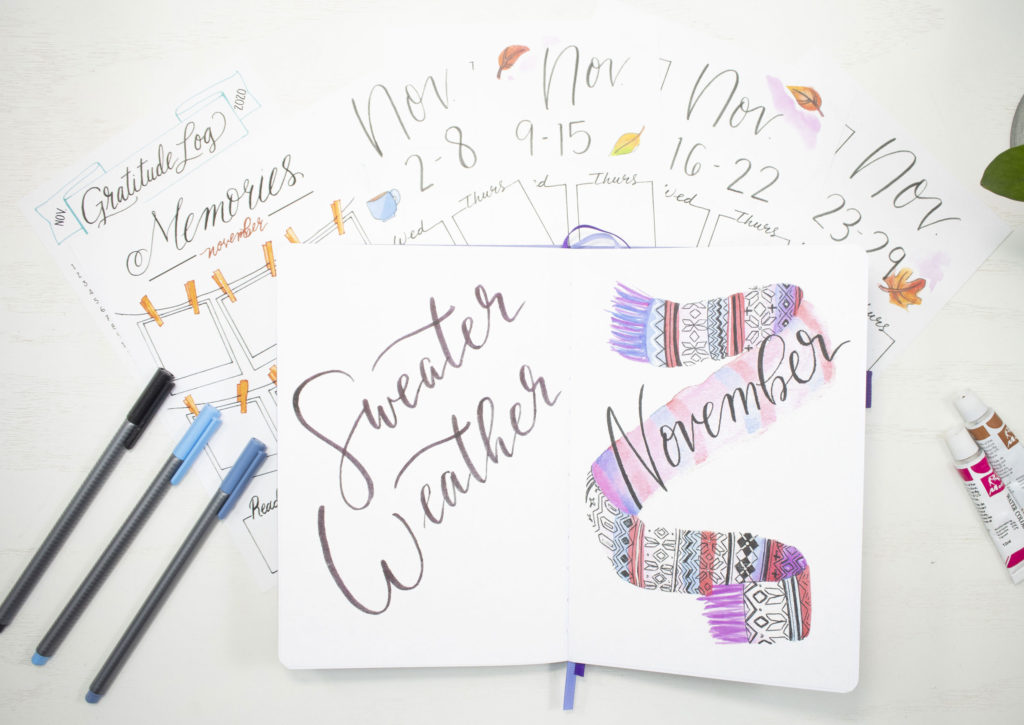 NOV
Gratitude Log
2020
Memories
november
Nov.
2-8
Nov.
9-15
Nov.
16-22
Nov.
23-29
Wed
Thurs
Thurs
Wed
Thurs
Thurs
Read
Sweater
Weather
November